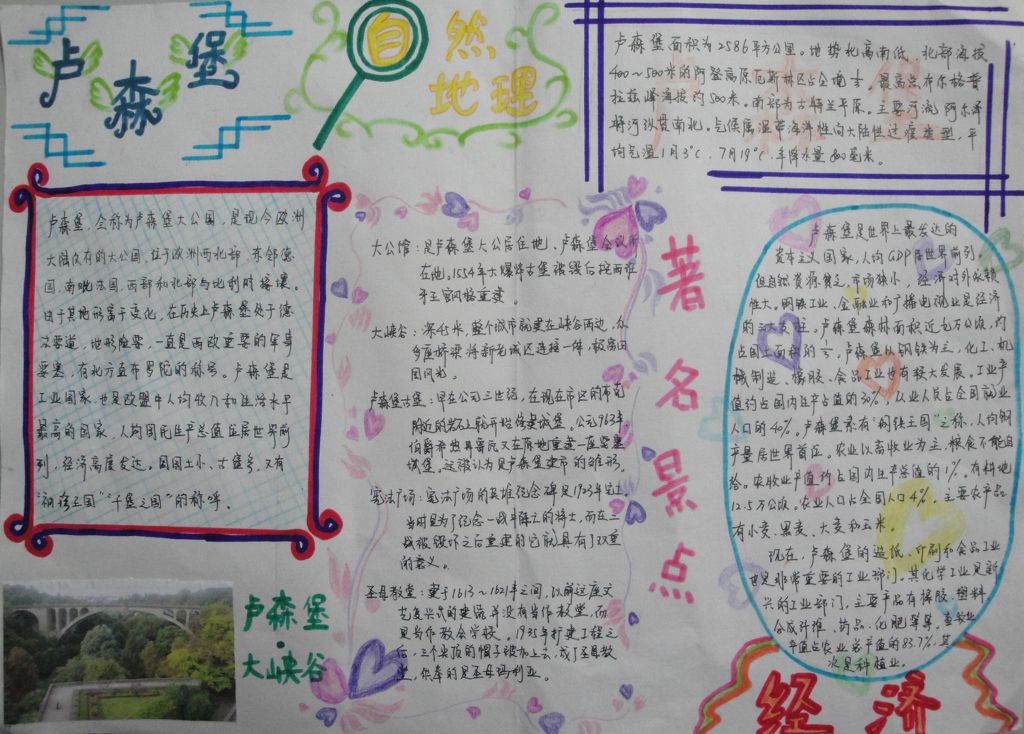 卢森堡
自然
地理
卢森堡面积为2586平方公里。地势北高南低,北部海拔
400~500米的阿登高原瓦斯林区占全境
最高点布尔格普
拉兹峰海拔约500米。南部为古特兰平原。主要河流阿尔泽
特河纵贯南北。气侯属温带海洋性向大陆性过渡类型,平
均气温1月3℃,7月19℃,年降水量800毫米。
卢森堡,全称为卢森堡大公国,是现今欧洲
大陆仅有的大公国,位于欧洲西北部,东邻德
国,南毗法国,西部和北部与比利时接壤。
由于其地形富于变化,在历史上卢森堡处于德
法要道,地形险要,一直是西欧重要的军事
要塞,有北方直布罗陀的称号。卢森堡是
工业国家,也是欧盟中人均收入和生活水平
最高的国家,人均国民生产总值位居世界前
列,经济高度发达。因国土小、古堡多,又有
“袖珍王国”“千堡之国”的称呼。
卢森堡
·
大峡谷
著名景点
大公馆:是卢森堡大公居住地、卢森堡会议所
在地,1554年大爆炸古堡被毁后按西班
牙王宫风格重建。
整个城市就建在峡谷两边,众
多座桥梁将新老城区连接一体,极富田
园风光。
卢森堡古堡:早在公元三世纪,在现在市区的布克
附近的岩石上就开始修建城堡。公元963年
在原地重建一座要塞
城堡,这被认为是卢森堡市的雏形。
宪法广场:宪法广场的英雄纪念碑是1923年完工,
当时是为了纪念一战牛阵亡的将士,而在二
战被毁坏之后重建的它就具有了双重
的意义。
圣母教堂:建于1613~1621年之间,以前这座文
艺复兴式的建筑并没有当作教堂,而
是当作教会学校。1935年扩建工程之
后,三个尖顶的帽子被加上去,成了圣母教
堂,供奉的是圣母玛利亚。
卢森堡是世界上最发达的
资本主义国家,人均GDP居世界前列。
但自然资源贫乏,市场狭小,经济对外依赖
性大。钢铁工业、金融业和广播电视业是经济
的三大支柱。卢森堡森林面积近9万公顷,约
占国土面积的
卢森堡以钢铁为主,化工、机
械制造、橡胶、食品工业也有较大发展。工业产
值约占国内生产总值的30%,从业人员占全国就业
人口的40%。卢森堡素有“钢铁王国”之称,人均钢
产量居世界首位。农业以畜牧业为主,粮食不能自
给。农牧业产值约占国内生产总值的1%,有耕地
12.5万公顷。农业人口占全国人口4%。主要农产品
有小麦、黑麦、大麦和玉米。
现在,卢森堡的造纸、印刷和食品工业
也是非常重要的工业部门。其化学工业是新
兴的工业部门,主要产品有橡胶、塑料
合成纤维、药品、化肥等等。畜牧业
产值占农业总产值的83.7%,其
次是种植业。
经济